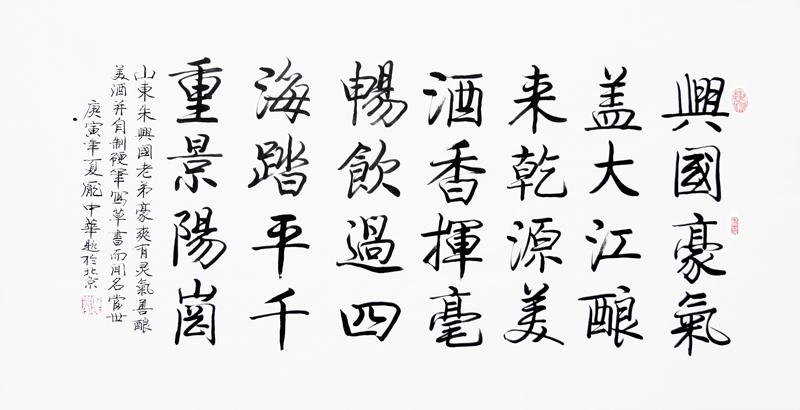 興國豪氣
盖大江酿
来乾源美
酒香揮毫
暢飲過四
海踏平千
重景陽崗
山東朱興國老弟豪爽有灵氣善酿
美酒并自制硬筆寫草書而聞名當世
庚寅年夏龐中華題於北京